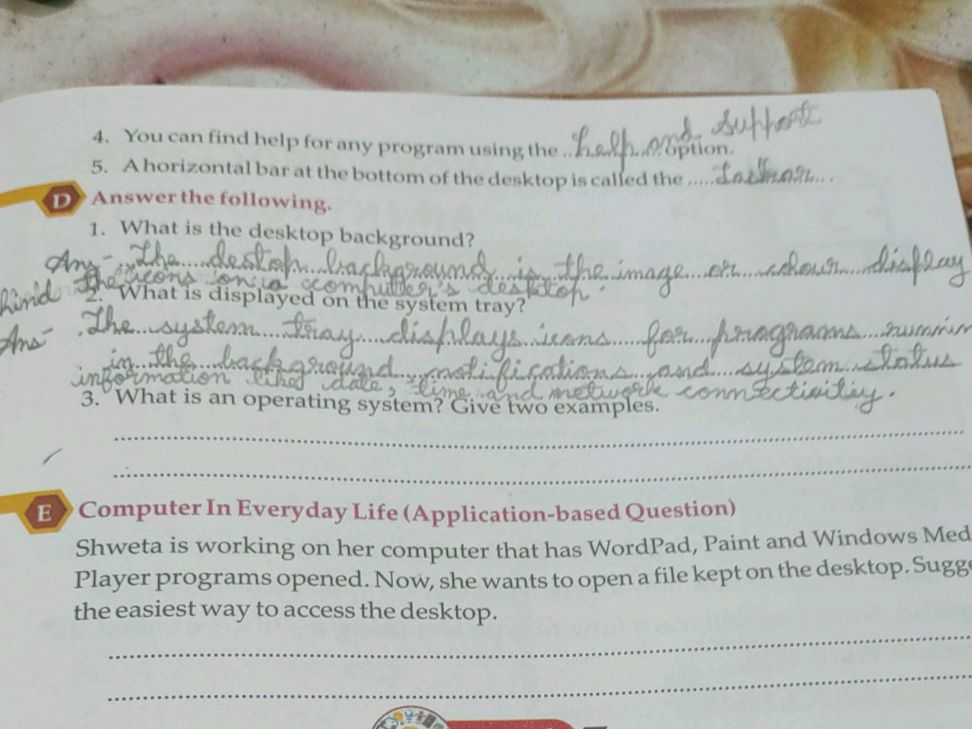 4. You can find help for any program using the ..help and support option.
5. A horizontal bar at the bottom of the desktop is called the ............
D Answer the following.
1. What is the desktop background?
Ans- The destop background is the image or colour display
hind the icons on a computer's desktop.
2. What is displayed on the system tray?
Ans- The system tray displays icons for programs runnin
in the background, notifications and system status
information like date, time and network connectivitiy.
3. What is an operating system? Give two examples.
E Computer In Everyday Life (Application-based Question)
Shweta is working on her computer that has WordPad, Paint and Windows Med
Player programs opened. Now, she wants to open a file kept on the desktop. Sugge
the easiest way to access the desktop.